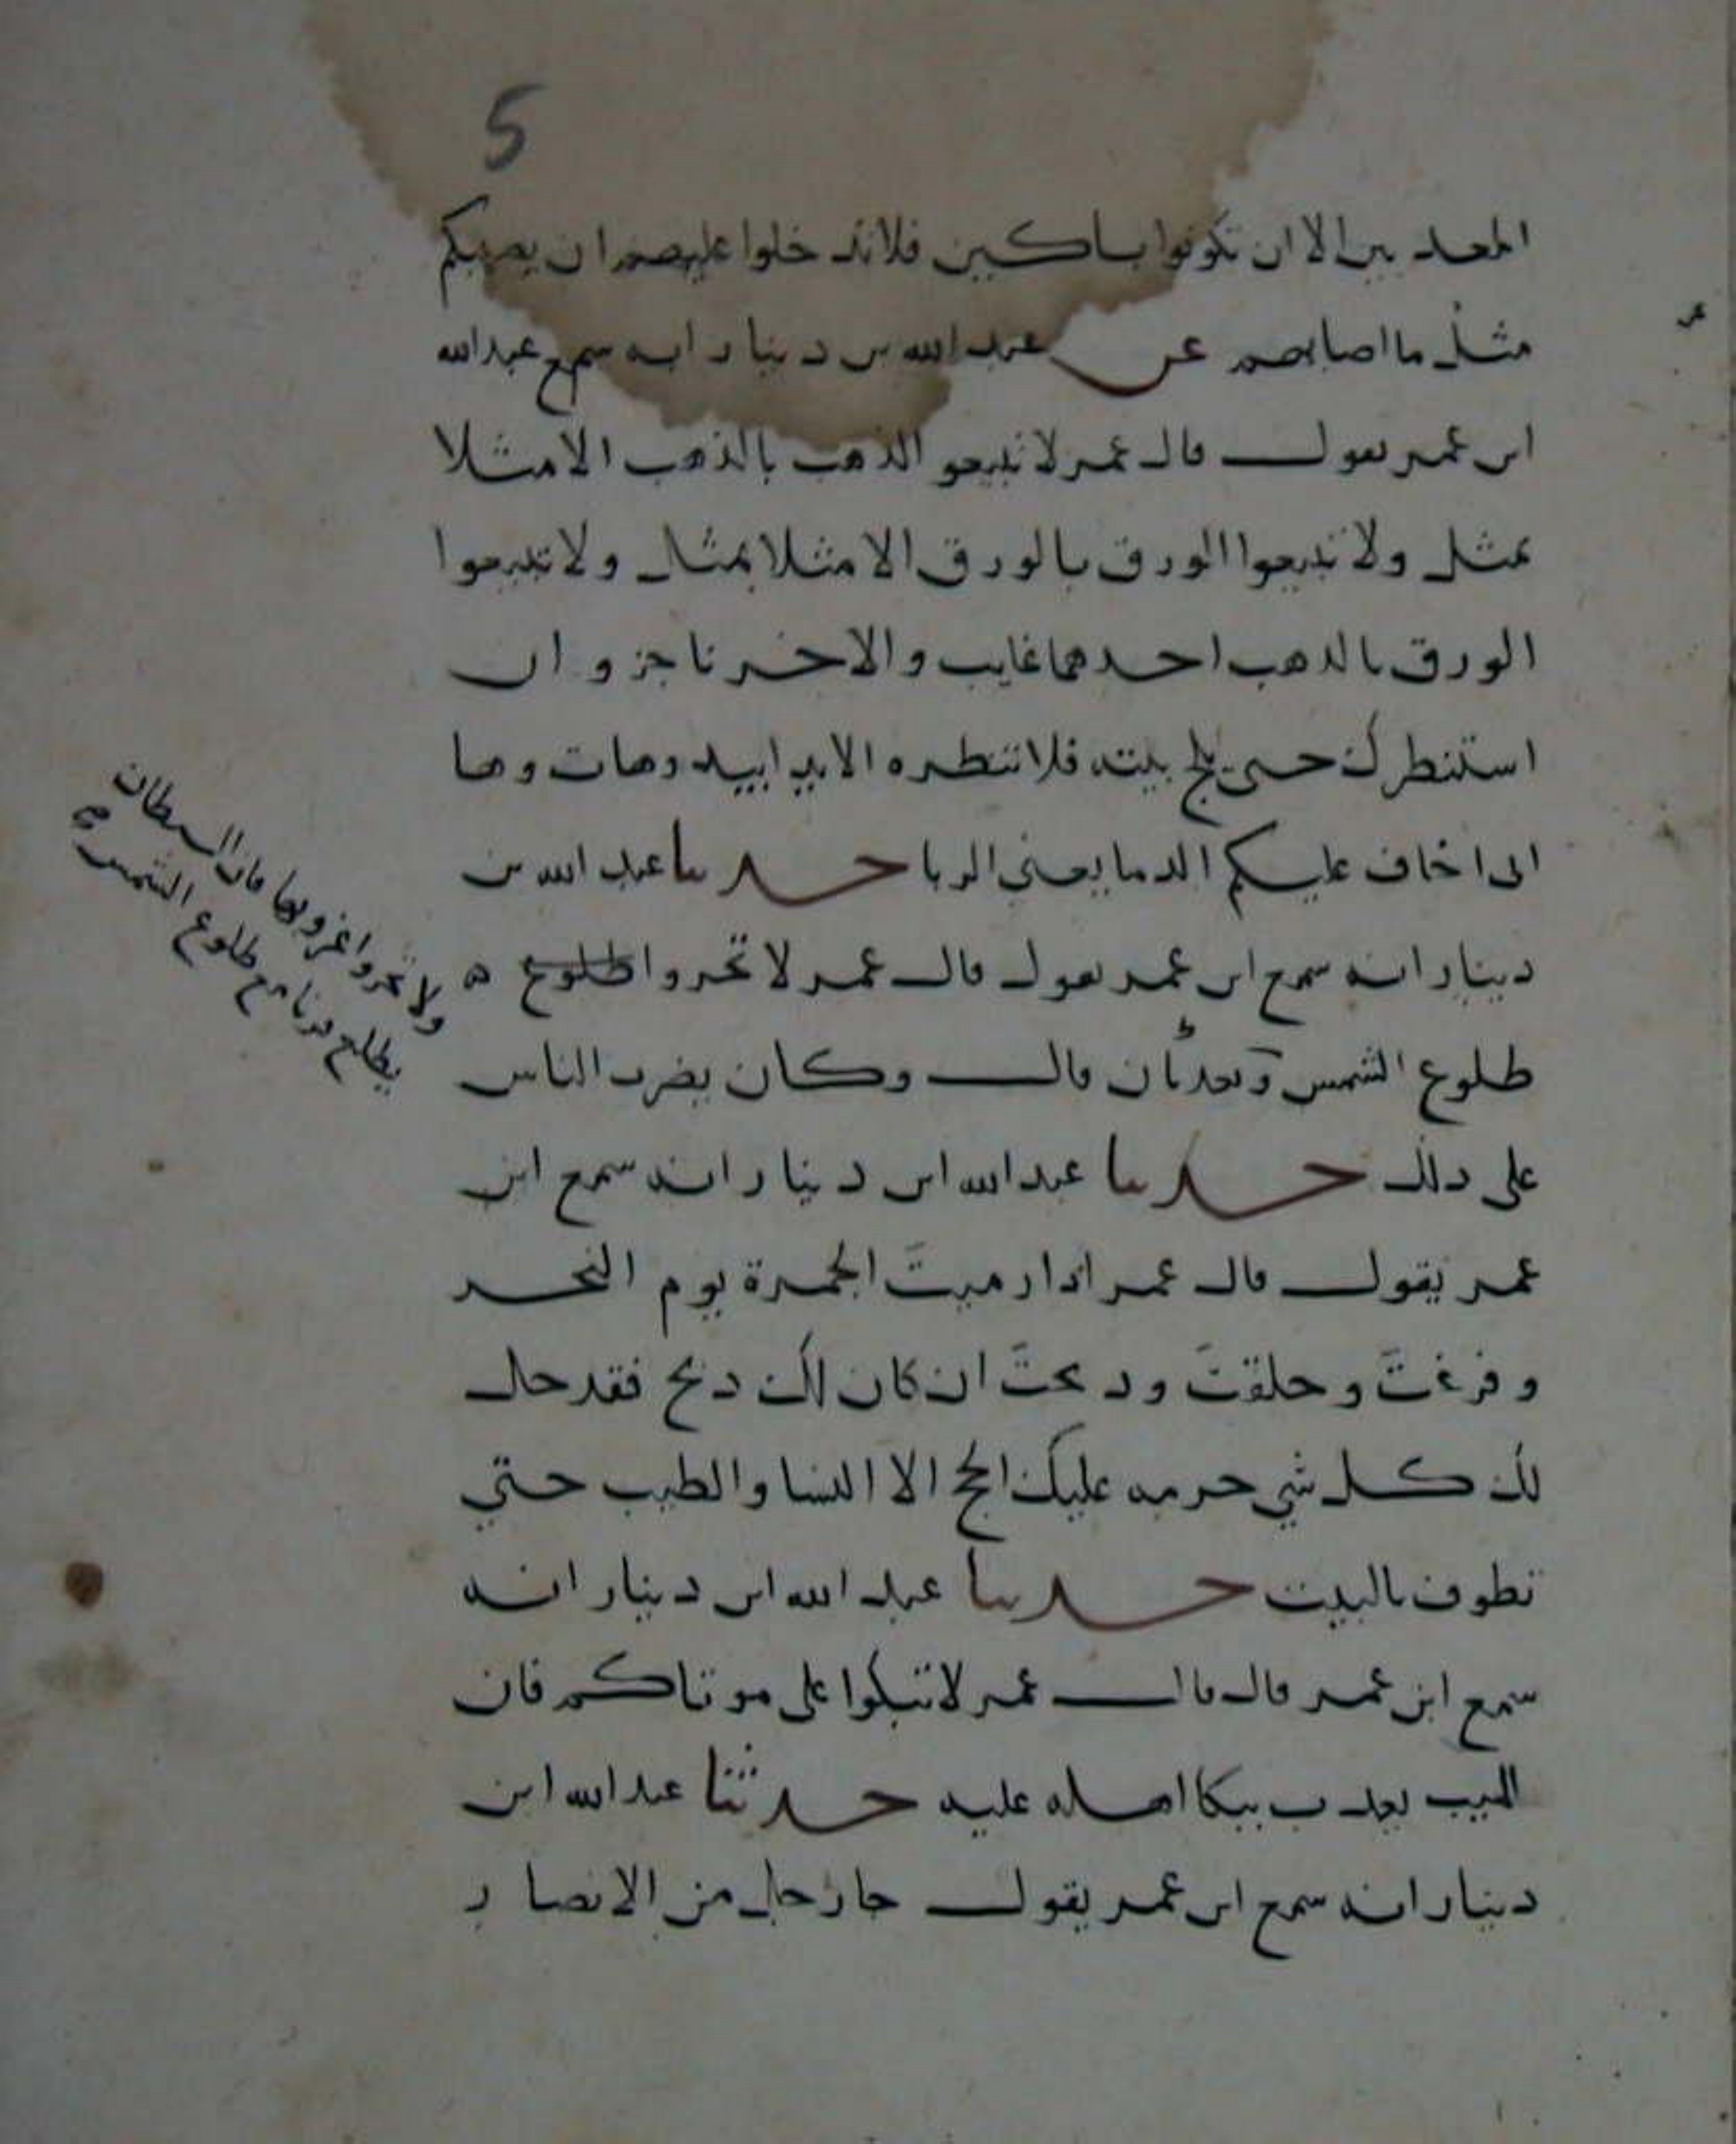 5
المعدبين الا ان تكونوا باكين فلا تدخلوا عليهم ان يصيبكم
مثل ما اصابهم عن عبد الله بن دينار انه سمع عبد الله
ابن عمر يقول قال عمر لا تبيعو الذهب بالذهب الا مثلا
بمثل ولا تبيعوا الورق بالورق الا مثلا بمثل ولا تبيعوا
الورق بالذهب احدهما غايب والاخر ناجز وان
استنظرك حتى يلج بيته فلا تنظره الا يد ابيد وهات وها
انى اخاف عليكم الدما يعني الربا حدثنا عبد الله بن
دينار انه سمع ابن عمر يقول قال عمر لا تحروا طلوع
طلوع الشمس قال وكان يضرب الناس
على ذلك حدثنا عبد الله ابن دينار انه سمع ابن
عمر يقول قال عمر اذا رميتَ الجمرة يوم النحر
وفرغتَ وحلقتَ ودبحتَ ان كان لك دبح فقد حل
لك كل شي حرمه عليك الحج الا النسا والطيب حتي
تطوف بالبيت حدثنا عبد الله ابن دينار انه
سمع ابن عمر قال قال عمر لا تبكوا على موتاكم فان
الميت يعذب ببكا اهله عليه حدثنا عبد الله ابن
دينار انه سمع ابن عمر يقول جا رجل من الانصار
ولا تحروا غروبها فان الشيطان
يطلع قرناه مع طلوع الشمس